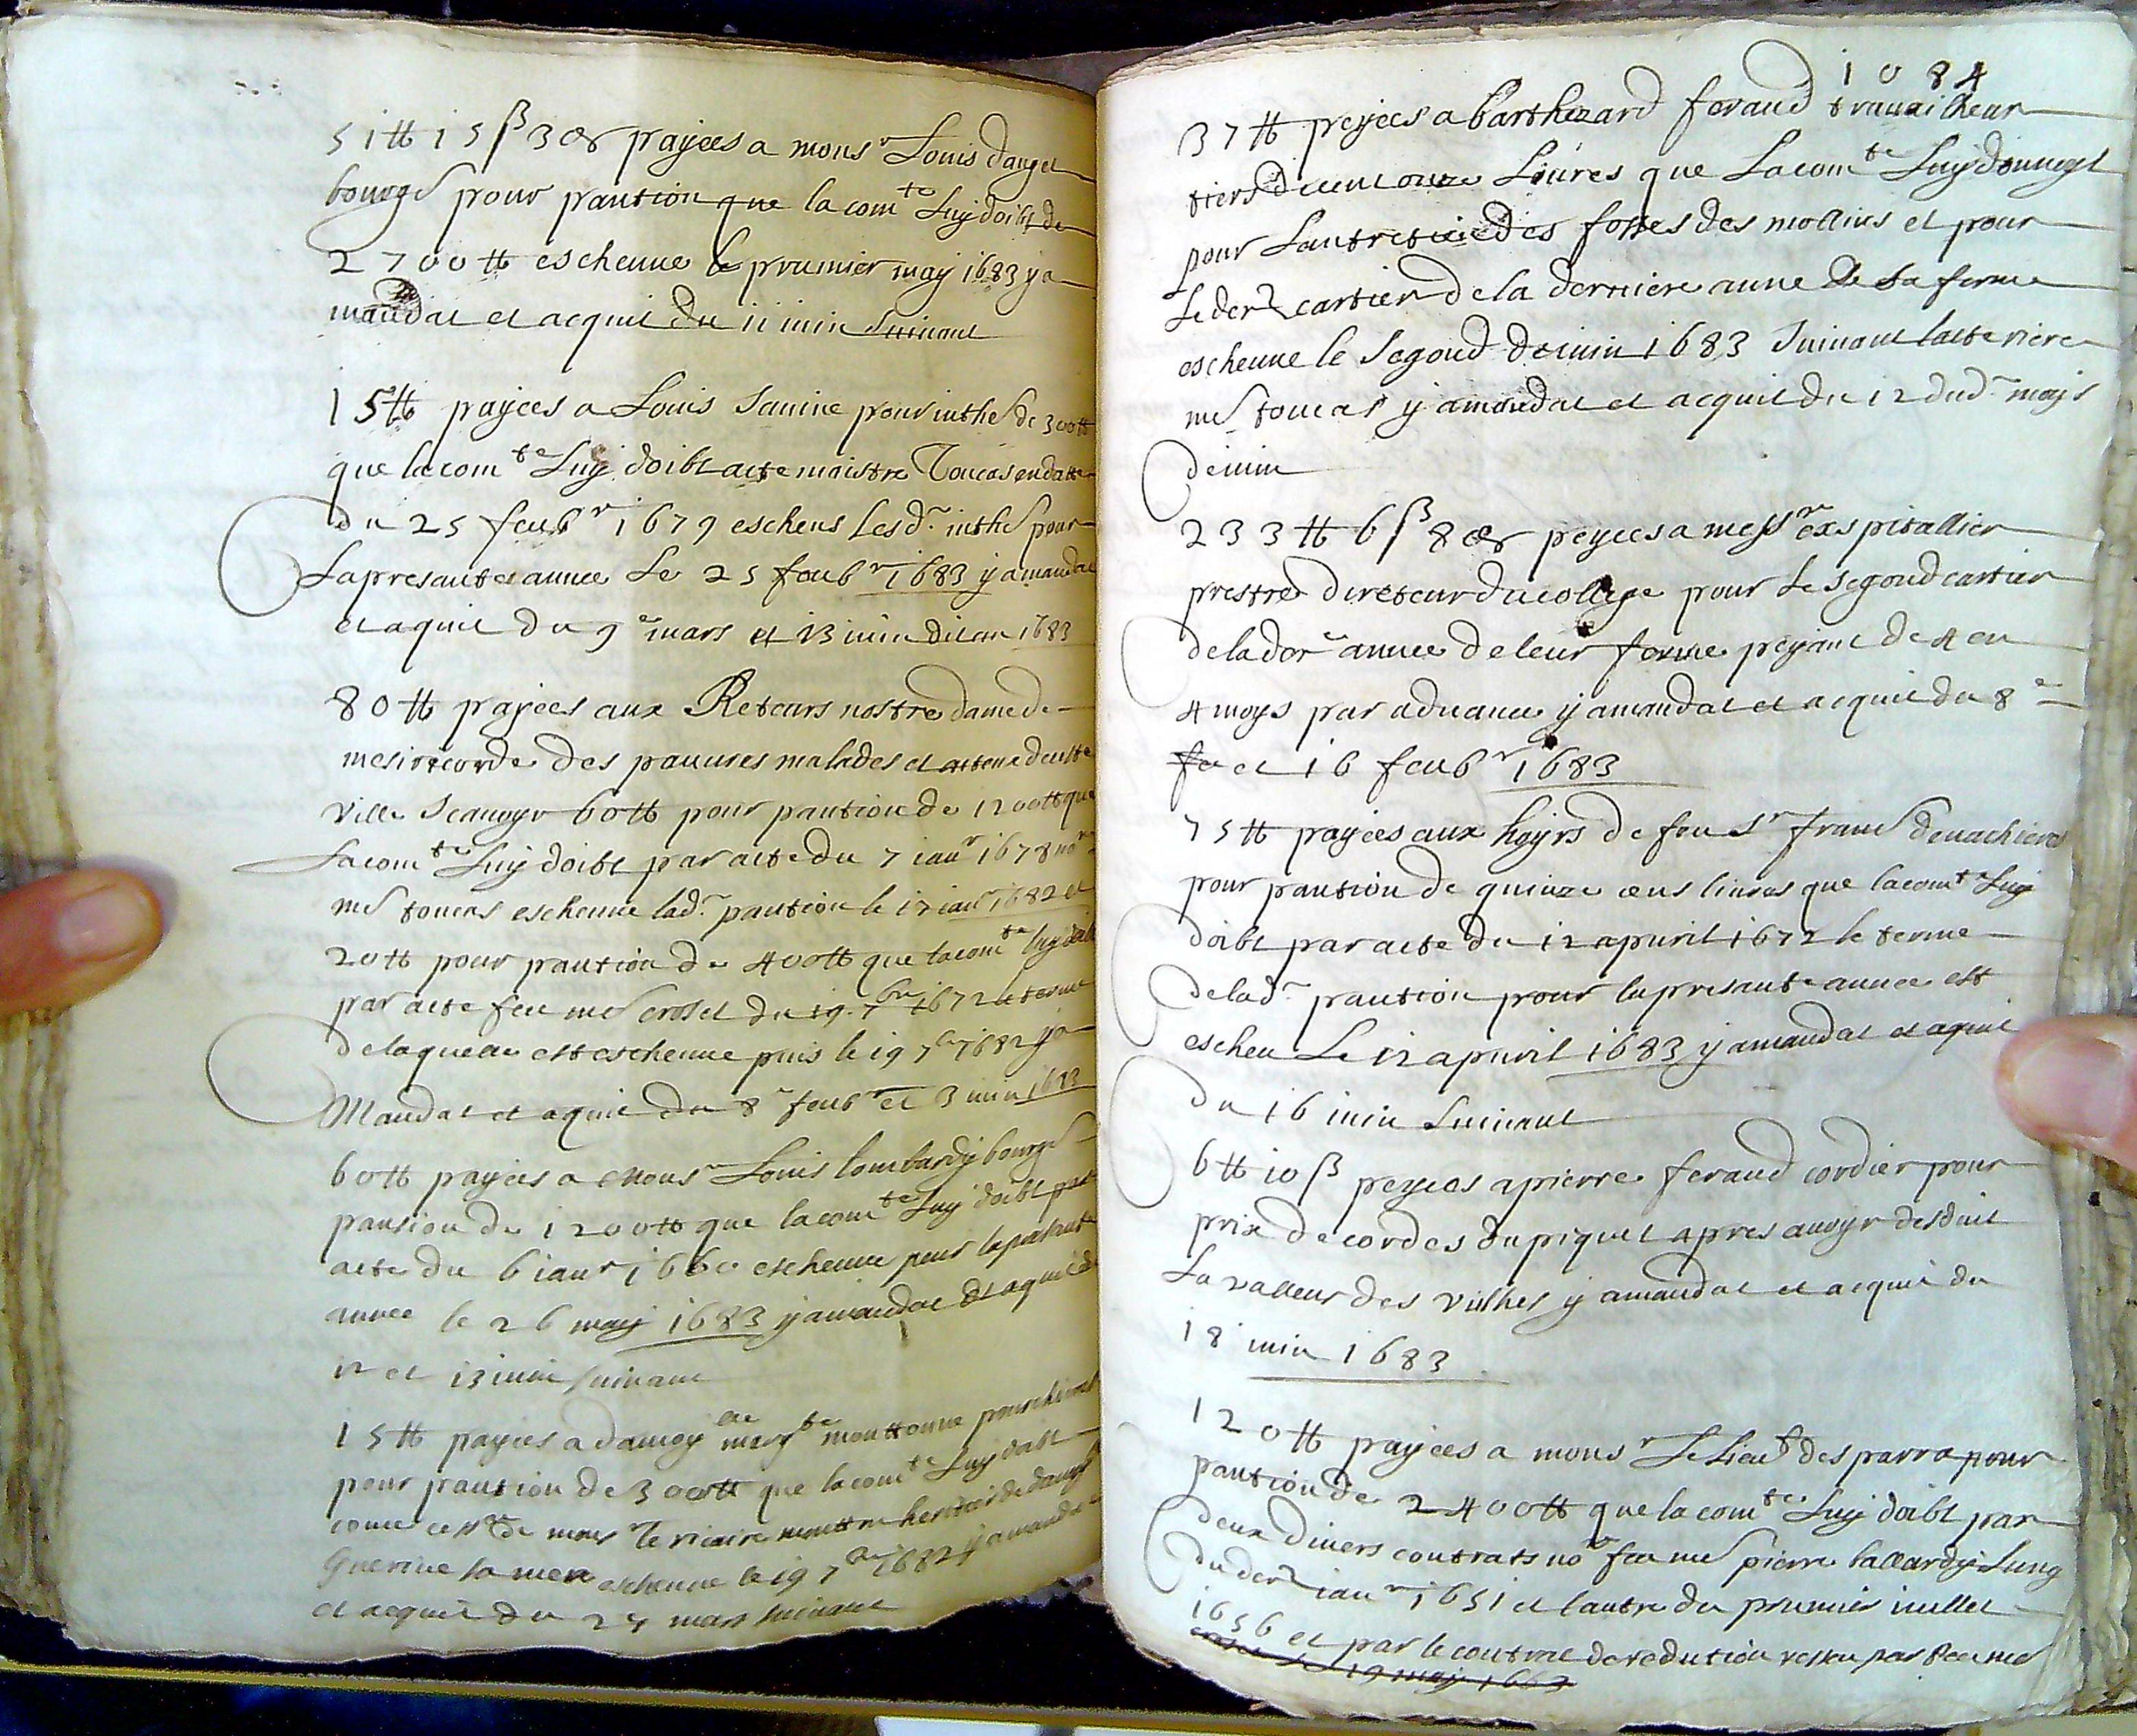 51tt 15 ß 3 ₰ payees a monsr Louis dauget
bourgs pour pantion que la comte Luy doibt de
2700tt escheue le prumier may 1683 y a
mandat et acquit du 11 iuin suiuant
15tt payees a Louis Sauine pour inthes de 300tt
que la comte Luy doibt acte maistre Toucas en datte
du 25 feubr 1679 escheus Lesd. inthes pour
La presante annee Le 25 feubr 1683 y a mandat
et aquit du 9e mars et 13 iuin dit an 1683
80tt payees aux Reteurs nostre dame de
mesiricorde des pauures malades et de ceste
ville Scauoyr 60tt pour pantion de 1200tt que
La comte Luy doibt par acte du 7 ianr 1678 nore
me toucas escheue lad. pantion le 17 ianr 1682 et
20tt pour pantion de 400tt que la comte luy doibt
par acte feu me croset du 19 7bre 1672 le terme
de laquelle est escheue puis le 19 7bre 1682 y a
Mandat et aquit du 8e feubr et 3 iuin 1683
60tt payees a Monsr Louis lombardy bourgs
pantion de 1200tt que la comte Luy doibt par
acte du 6 ianr 1660 escheue pour la presante
annee le 26 may 1683 y a mandat et aquit de
12 et 13 iuin suiuant
15tt payees a damoyelle margte mouttonne pourchieres
pour pantion de 300tt que la comte Luy doibt
come de monsr le vicaire mouttou heritier de
Guerine sa mere escheue le 19 7bre 1682 y a mandat
et acquit du 24 mars suiuant
1084
37tt peyees a barthezard feraud trauailheur
tiers de cent onze Liures que La comte Luy donnoyt
pour Lantretien des fosses des mollins et pour
Le der cartier de la derniere anne de sa ferme
escheue le segond de iuin 1683 Suiuant lacte riere
me toucas y a mandat et acquit du 12 dud. moys
de iuin
233tt 6 ß 8 ₰ peyees a messr exspitallier
prestre direteur du college pour Le segond cartier
de la der annee de leur ferme peyant de 4 en
4 moys par aduance y a mandat et acquit du 8e
fe et 16 feubr 1683
75tt payees aux hoyrs de feu Sr frans de uachieres
pour pantion de quinze cens liures que la comte Luy
doibt par acte du 12 apuril 1672 le terme
de lad. pantion pour la presante annee est
escheu Le 12 apuril 1683 y a mandat et aquit
du 16 iuin Suiuant
6tt 10 ß peyees a pierre feraud cordier pour
prix de cordes du piquet apres auoyr desduit
La valleur des vielhes y a mandat et acquit du
18 iuin 1683
120tt payees a monsr Le Lieut des parra pour
pantion de 2400tt que la comte Luy doibt par
deux diuers contrats nore feu me pierre ballardy Lung
du der ianr 1651 et lautre du prumier iuillet
1656 et par le contrat de redution ressu par feu me
croset le 19 may 1663